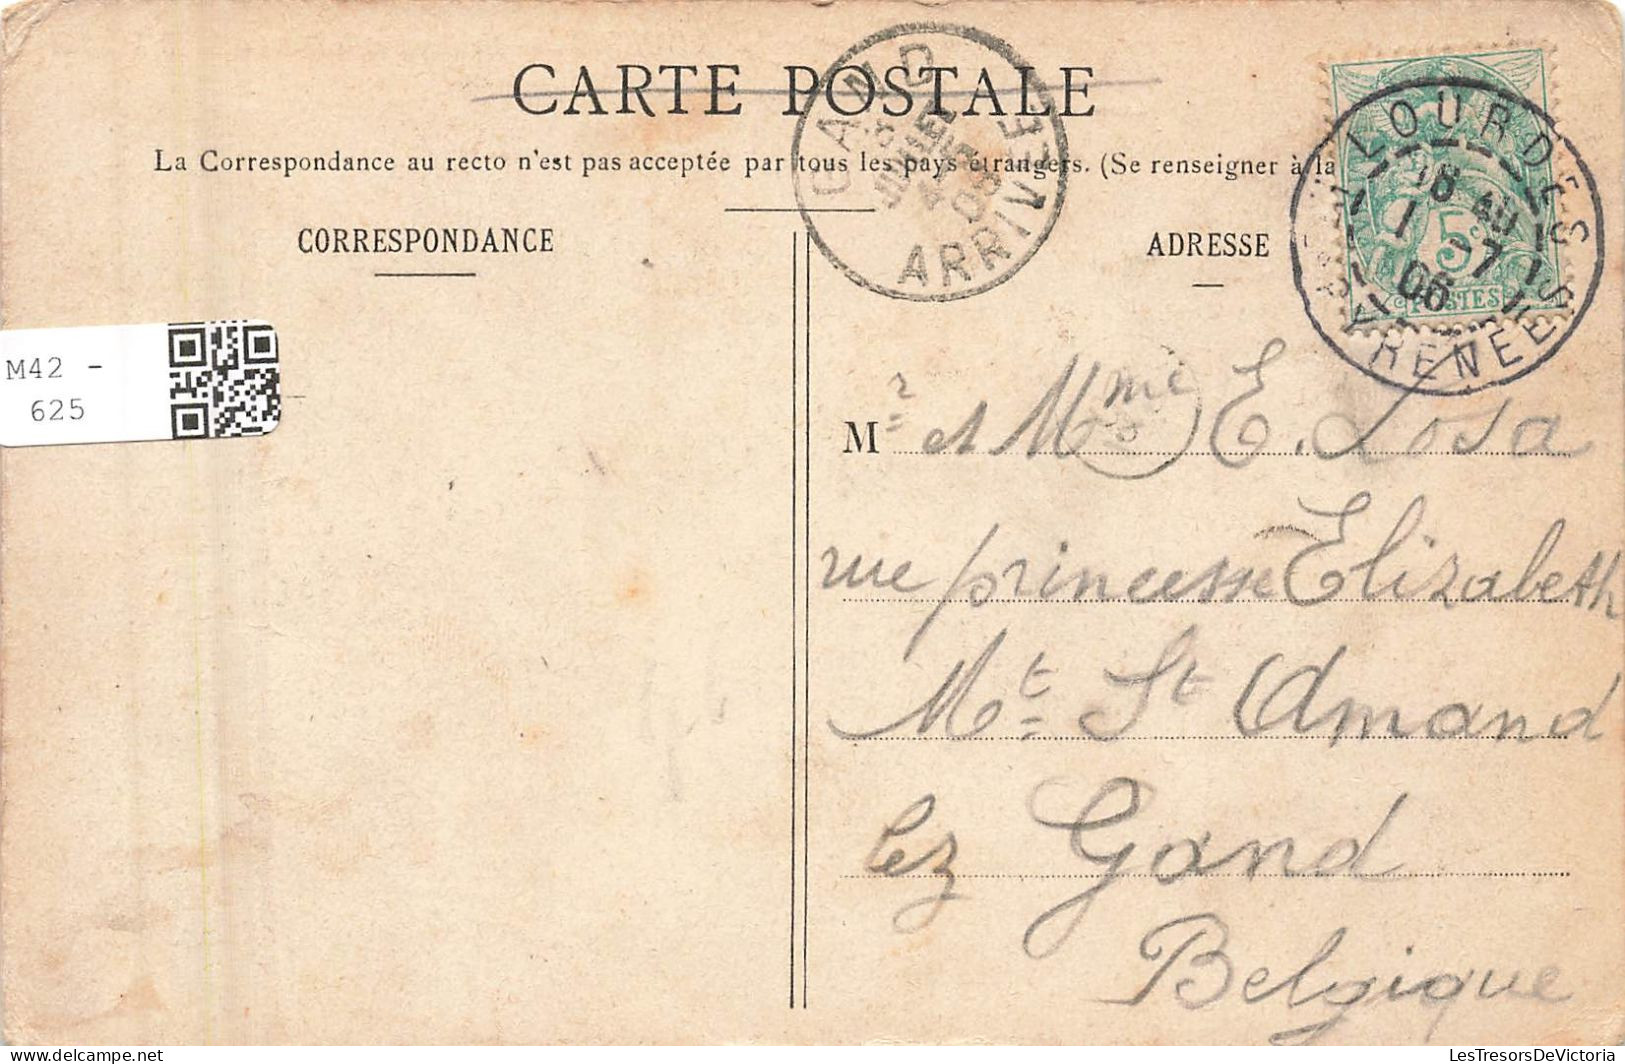 CARTE POSTALE
La Correspondance au recto n'est pas acceptée par tous les pays étrangers. (Se renseigner à la
CORRESPONDANCE
ADRESSE
GAND
ARRIVÉE
LOURDES
PYRENEES
5c
POSTES
M42 -
625
Mr et Mme E. Losa
rue princesse Elizabeth
Mt St Amand
lez Gand
Belgique
LesTresorsDeVictoria